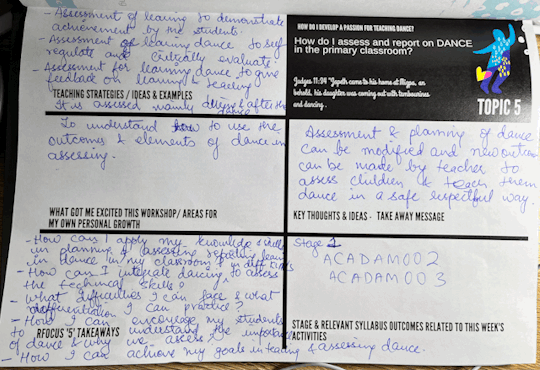 - Assessment of learning to demonstrate
achievement by the students.
- Assessment as learning dance to self
regulate and critically evaluate
- Assessment for learning dance to give
feedback on learning & teaching
TEACHING STRATEGIES / IDEAS & EXAMPLES
It is assessed mainly during & after the
dance
HOW DO I DEVELOP A PASSION FOR TEACHING DANCE?
How do I assess and report on DANCE
in the primary classroom?
Judges 11:34 "Jepath came to his home at Mizpa, an
behold, his daughter was coming out with tambourines
and dancing.
TOPIC 5
To understand how to use the
outcomes & elements of dance in
assessing.
WHAT GOT ME EXCITED THIS WORKSHOP/ AREAS FOR
MY OWN PERSONAL GROWTH
Assessment & planning of dance
can be modified and new outcomes
can be made by teacher to
assess children & teach them
dance in a safe respectful way.
KEY THOUGHTS & IDEAS - TAKE AWAY MESSAGE
- How can I apply my knowledge & skills
in planning & assessing reporting learning
in dance in my classroom &
- How can I integrate dancing to assess
the technical skills?
- What difficulties I can face & what
differentiation I can practice?
- How I can encourage my students
to understand the importance
of dance & why we assess?
RFOCUS '5' TAKEAWAYS
- How I can achieve my goals in teaching & assessing dance.
Stage 1
ACADAM002
ACADAM003
STAGE & RELEVANT SYLLABUS OUTCOMES RELATED TO THIS WEEK'S
ACTIVITIES